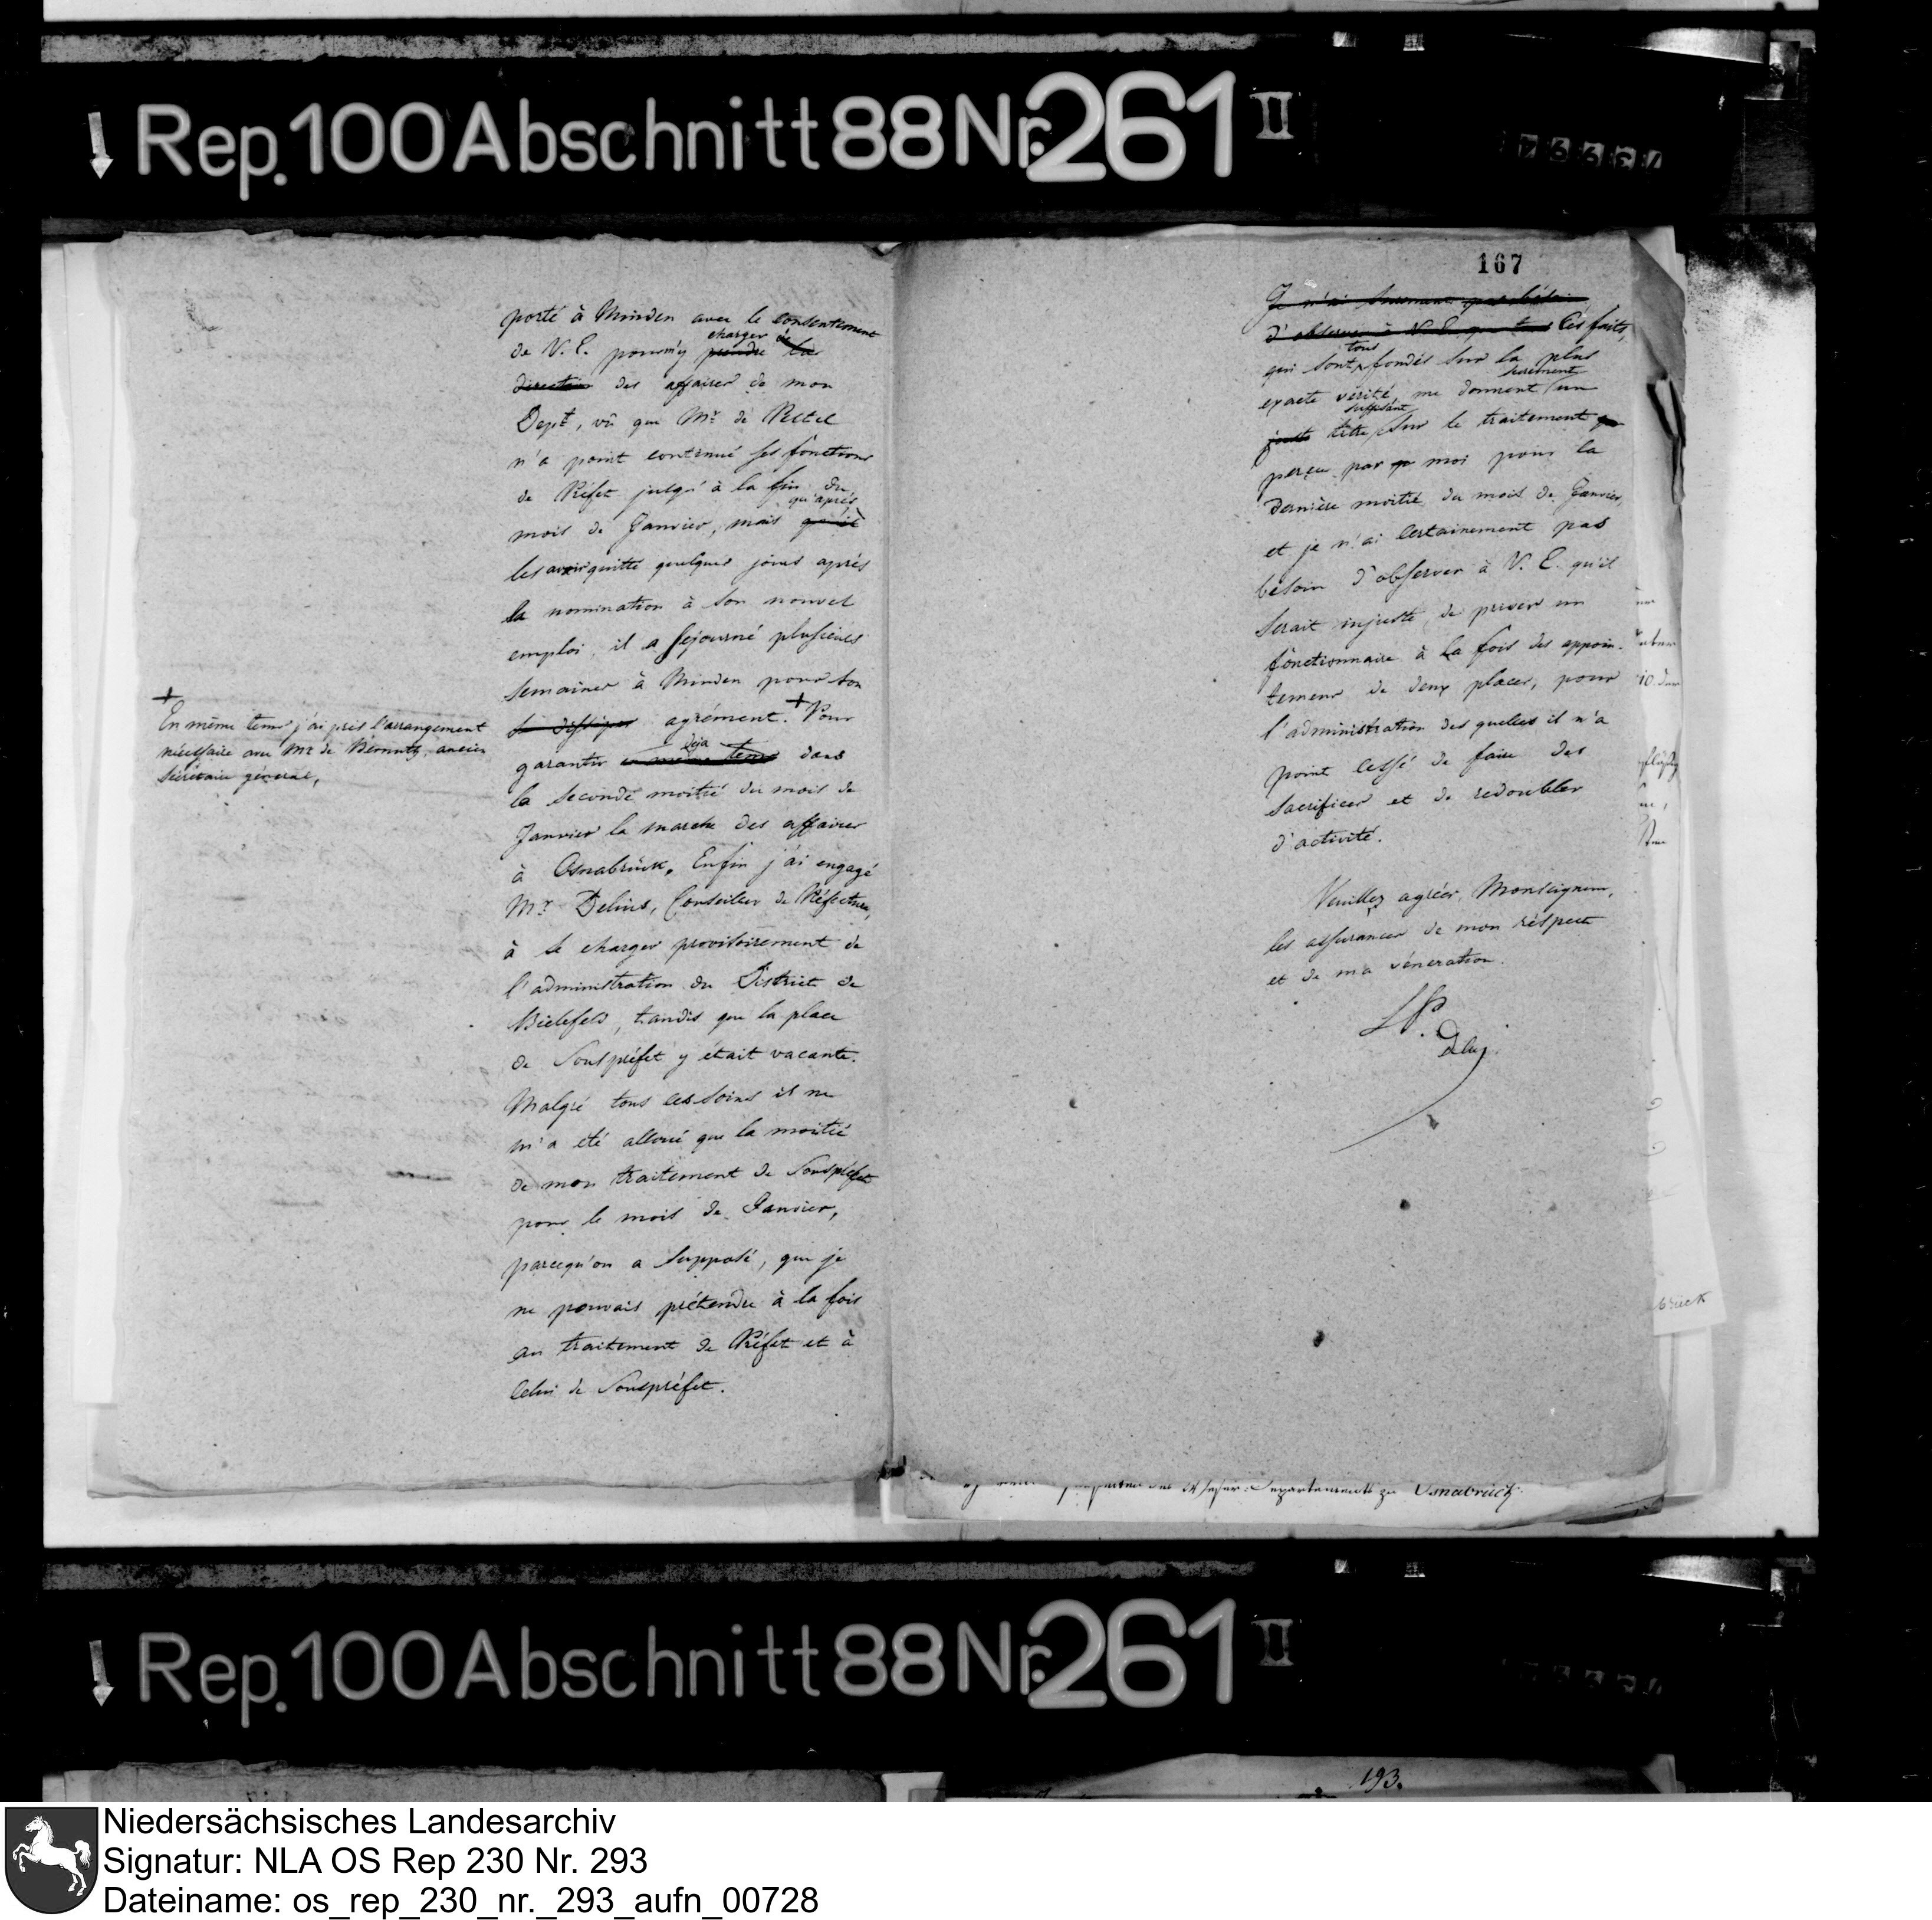 Rep. 100 Abschnitt 88 Nr. 261 II
porté à Minden avec le consentement
de V. E. pour m'y prendre charger de la
direction des affaires de mon
Dept, vû que Mr. de Pestel
n'a point continué ses fonctions
de Préfet jusqu'à la fin du
mois de Janvier, mais qu'après
les avoir quitté quelques jours après
la nomination à son nouvel
emploi, il a séjourné plusieurs
semaines à Minden pour son
agrément. + Pour
garantir en même tems déja dans
la seconde moitié du mois de
Janvier la marche des affaires
à Osnabrück. Enfin j'ai engagé
Mr. Delius, Conseiller de Préfecture,
à se charger provisoirement de
l'administration du District de
Bielefeld, tandis que la place
de Souspréfet y était vacante.
Malgré tous ces soins il ne
m'a été alloué que la moitié
de mon traitement de Souspréfet
pour le mois de Janvier,
parcequ'on a supposé, que je
ne pouvais prétendre à la fois
au traitement de Préfet et à
celui de Souspréfet.
+
En même tems j'ai pris l'arrangement
nécessaire avec Mr de ancien
Sécrétaire général,
167
Je n'ai surement pas bésoin
d'observer à V. E. que tous Ces faits,
qui sont tous fondés sur la plus
exacte vérité, me donnent surement un
juste titre suffisant sur le traitement
perçu par moi pour la
dernière moitié du mois de Janvier,
et je n'ai certainement pas
bésoin d'observer à V. E. qu'il
serait injuste, de priver un
fonctionnaire à la fois des appoin-
temens de deux places, pour
l'administration des quelles il n'a
point cessé de faire des
sacrifices et de redoubler
d'activité.
Veuillez agréer, Monseigneur,
les assurances de mon réspect
et de ma véneration.
LP.
Dls
Departements zu Osnabrück
brück
Rep. 100 Abschnitt 88 Nr. 261 II
193.
Niedersächsisches Landesarchiv
Signatur: NLA OS Rep 230 Nr. 293
Dateiname: os_rep_230_nr._293_aufn_00728